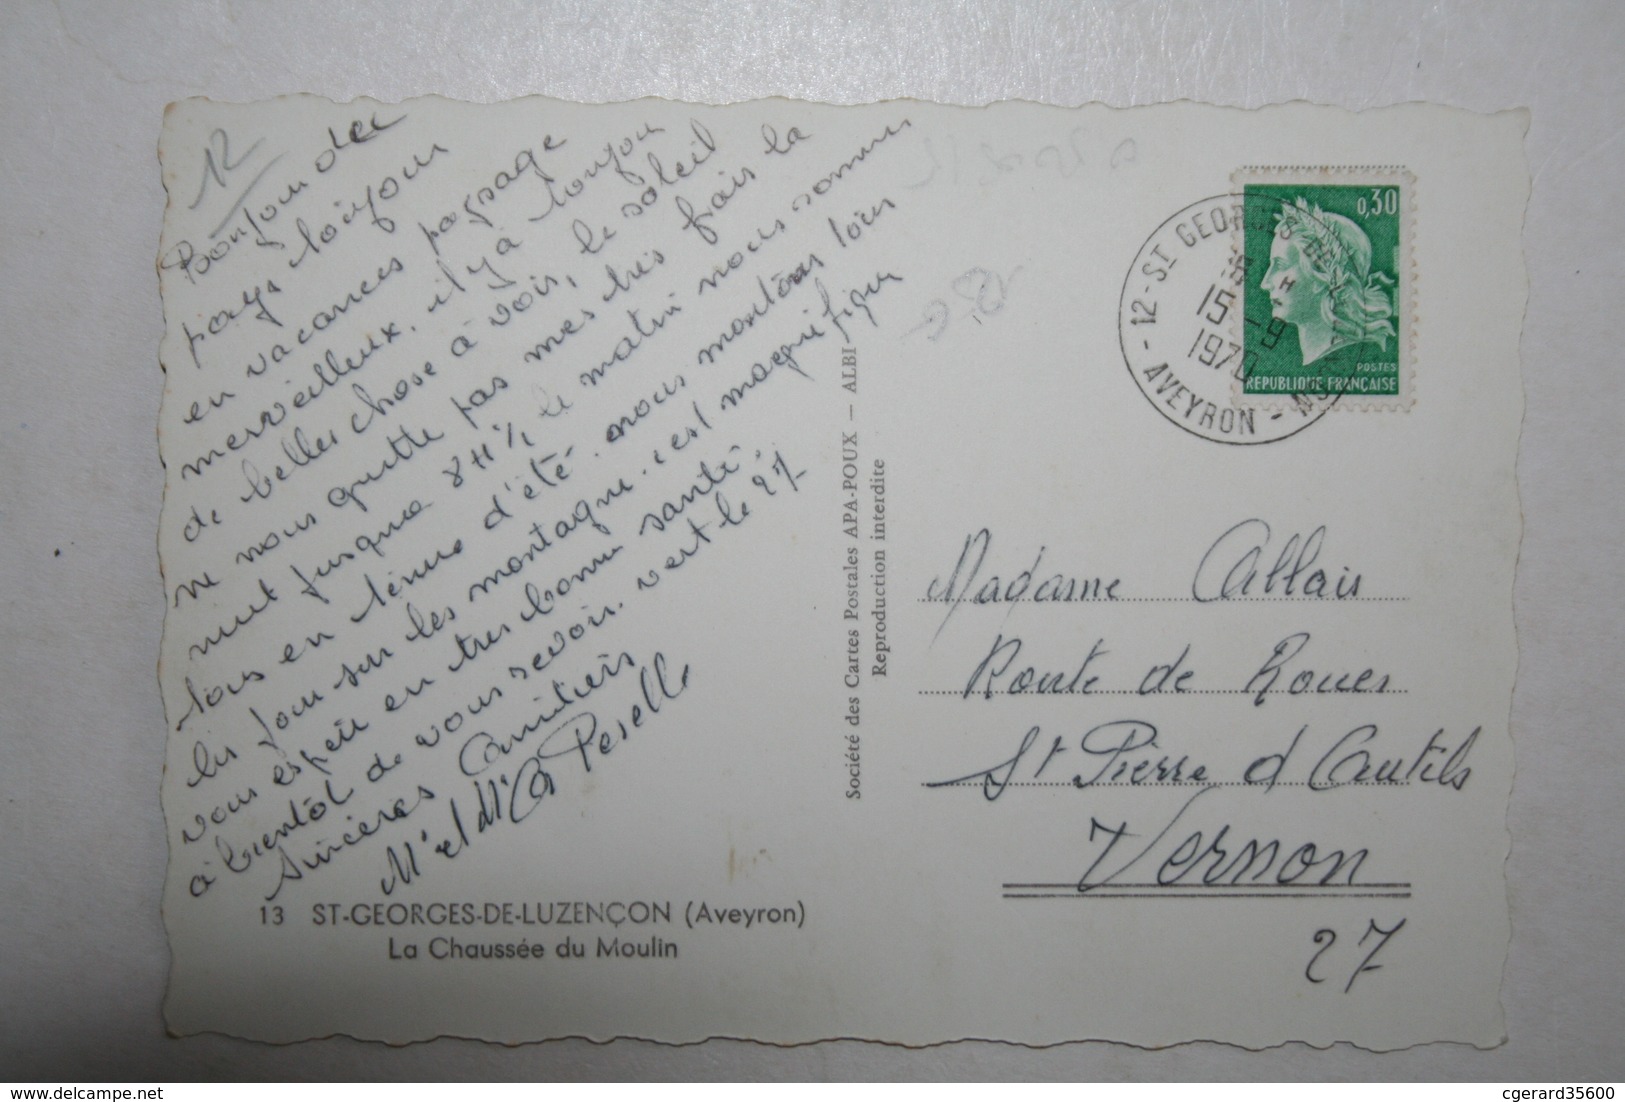 12
Bonjour des
pays toujour
en vacances paysage
merveilleux. il y a toujour
de belles chose à voir, le soleil
ne nous quitte pas mes très frais la
nuit jusqua 8H½ le matin nous somme
tous en tenue d'été. nous montons tous
les jour sur les montagne. c'est magnifique
vous espère en très bonne santé.
à bientôt de vous revoir. vert le 27
Sincères Amitiers
M. et Mme Peselle
13 ST-GEORGES-DE-LUZENÇON (Aveyron)
La Chaussée du Moulin
Société des Cartes Postales APA-POUX — ALBI
Reproduction interdite
0,30
POSTES
REPUBLIQUE FRANÇAISE
12 - ST GEORGES DE LUZENÇON - AVEYRON -
15 - 9
1970
Madame Allais
Route de Roues
St Pierre d Cautils
Vernon
27
cgerard35600